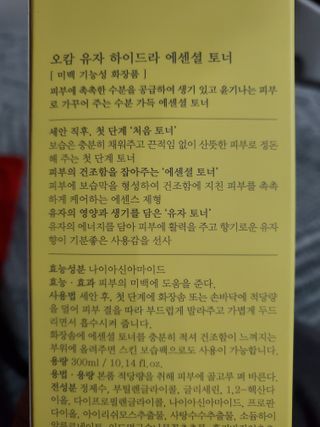 오캄 유자 하이드라 에센셜 토너
[ 미백 기능성 화장품 ]
피부에 촉촉한 수분을 공급하여 생기 있고 윤기나는 피부
로 가꾸어 주는 수분 가득 에센셜 토너
세안 직후, 첫 단계 '처음 토너'
보습은 충분히 채워주고 끈적임 없이 산뜻한 피부로 정돈
해 주는 첫 단계 토너
피부의 건조함을 잡아주는 '에센셜 토너'
피부에 보습막을 형성하여 건조함에 지친 피부를 촉촉
하게 케어하는 에센스 제형
유자의 영양과 생기를 담은 '유자 토너'
유자의 에너지를 담아 피부에 활력을 주고 향기로운 유자
향이 기분좋은 사용감을 선사
효능성분 나이아신아마이드
효능 · 효과 피부의 미백에 도움을 준다.
사용법 세안 후, 첫 단계에 화장솜 또는 손바닥에 적당량
을 덜어 피부 결을 따라 부드럽게 발라주고 가볍게 두드
리면서 흡수시켜 줍니다.
화장솜에 에센셜 토너를 충분히 적셔 건조함이 느껴지는
부위에 올려주면 스킨 보습팩으로도 사용이 가능합니다.
용량 300ml / 10.14 fl.oz.
용법 · 용량 본품 적당량을 취해 피부에 골고루 펴 바른다.
전성분 정제수, 부틸렌글라이콜, 글리세린, 1,2-헥산다
이올, 다이프로필렌글라이콜, 나이아신아마이드, 프로판
다이올, 아이리쉬모스추출물, 사탕수수추출물, 소듐하이